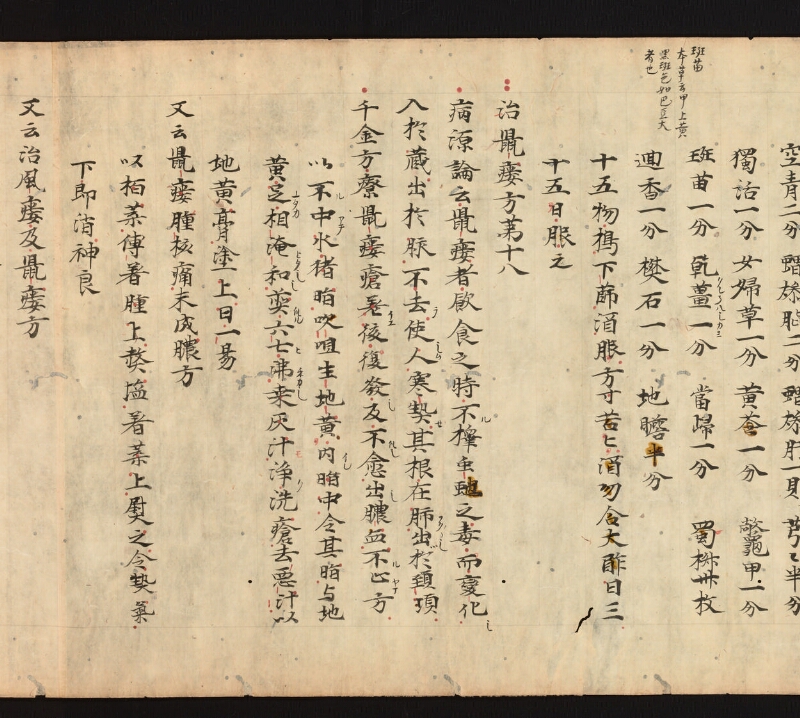 空青二分 蝟𦚾胆二分 蝟𦚾肝一具 芎々半分
獨活一分 女婦草一分 黄芩一分 鼈龜甲一分
班苗一分 乾薑一分 當歸一分 蜀椒卅枚
茴香一分 樊石一分 地瞻半分
班苗
本草云甲上黄
黒班色如巴豆大
者也
十五物搗下篩酒服方寸苦匕酒勿合大酢日三
十五日服之
治鼠瘻方第十八
病源論云鼠瘻者飲食之時不擇虫蛆之毒而変化
入於蔵出於脉不去使人寒熱其根在肺出於頚項
千金方療鼠瘻瘡差後復發及不愈出膿血不止方
以不中水猪脂㕮咀生地黄内脂中令其脂与地
黄足相淹和煎六七沸桒灰汁浄洗瘡去悪汁以
地黄膏塗上日一易
又云鼠瘻腫核痛未成膿方
以栢葉傅著腫上熬塩著葉上熨之令熱薬
下即消神良
又云治風瘻及鼠瘻方